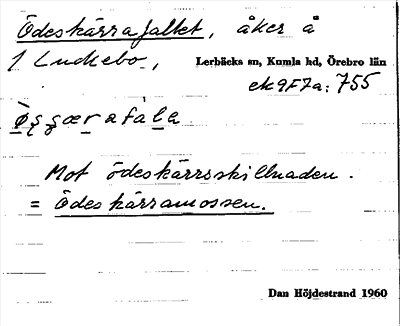 Ödeskärrafallet, åker å
1 Luckebo, Lerbäcks sn, Kumla hd, Örebro län
ek 9F7a: 755
Mot ödeskärrsskillnaden.
= Ödeskärramossen.
Dan Höjdestrand 1960